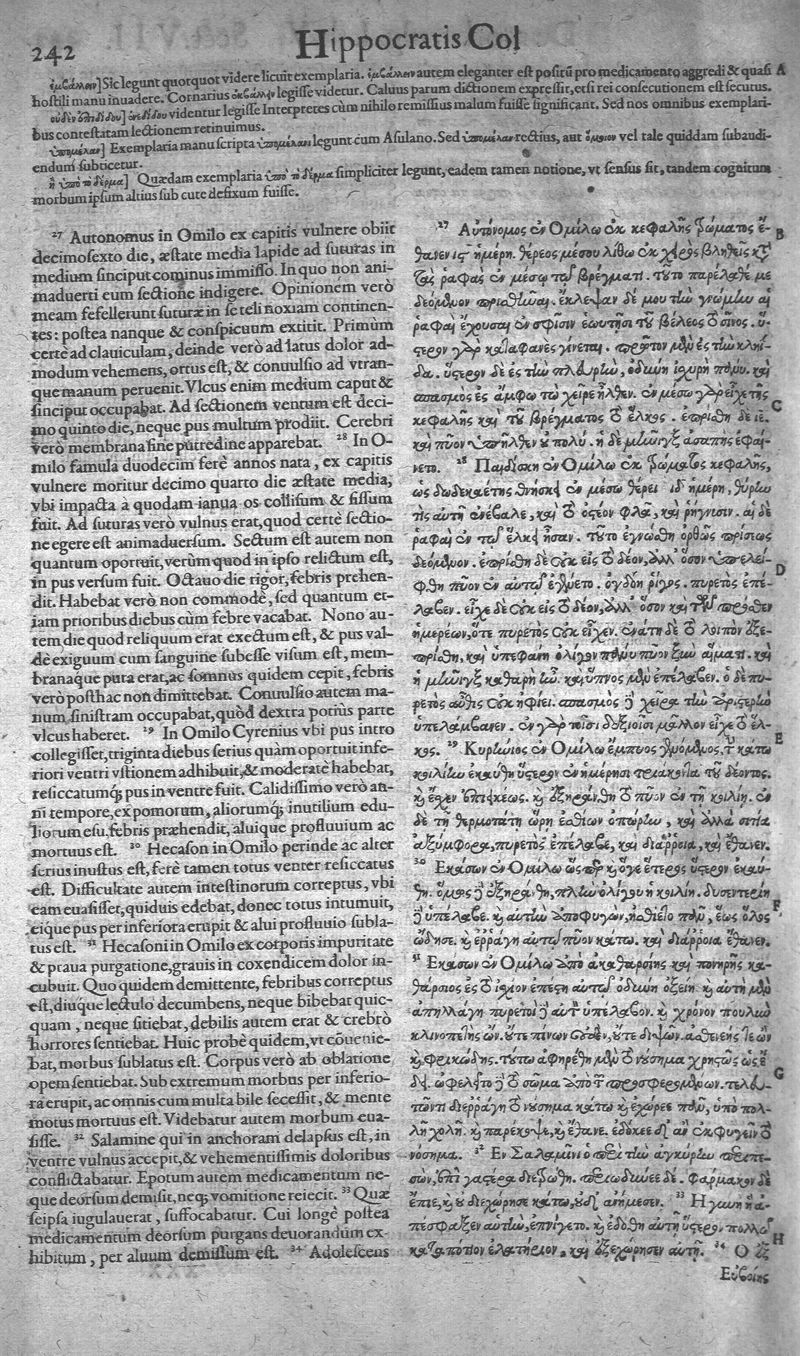 242
Hippocratis Col
Sic legunt quotquot videre licuit exemplaria. autem eleganter est positū pro medicamento aggredi & quasi A
hostili manu inuadere. Cornarius legisse videtur. Caluus parum dictionem expressit, etsi rei consecutionem est secutus.
videntur legisse Interpretes cùm nihilo remissius malum fuisse significant. Sed nos omnibus exemplari-
bus contestatam lectionem retinuimus.
Exemplaria manuscripta legunt cum Asulano. Sed rectius, aut vel tale quiddam subaudi-
endum subticetur.
Quædam exemplaria simpliciter legunt, eadem tamen notione, vt sensus sit, tandem cognitum
morbum ipsum altius sub cute defixum fuisse.
27 Autonomus in Omilo ex capitis vulnere obiit
decimosexto die, æstate media lapide ad suturas in
medium sinciput cominus immisso. In quo non ani-
maduerti eum sectione indigere. Opinionem verò
meam fefellerunt suturæ in se teli noxiam continen-
tes: postea nanque & conspicuum extitit. Primùm
certè ad clauiculam, deinde verò ad latus dolor ad-
modum vehemens, ortus est, & conuulsio ad vtran-
que manum peruenit. Vlcus enim medium caput &
sinciput occupabat. Ad sectionem ventum est deci-
mo quinto die, neque pus multum prodiit. Cerebri
verò membrana sine putredine apparebat. 28 In O-
milo famula duodecim ferè annos nata, ex capitis
vulnere moritur decimo quarto die æstate media,
vbi impacta à quodam ianua os collisum & fissum
fuit. Ad suturas verò vulnus erat, quod certè sectio-
ne egere est animaduersum. Sectum est autem non
quantum oportuit, verùm quod in ipso relictum est,
in pus versum fuit. Octauo die rigor, febris prehen-
dit. Habebat verò non commodè, sed quantum et-
iam prioribus diebus cùm febre vacabat. Nono au-
tem die quod reliquum erat exectum est, & pus val-
dè exiguum cum sanguine subesse visum est, mem-
branaque pura erat, ac somnus quidem cepit, febris
verò posthac non dimittebat. Conuulsio autem ma-
num sinistram occupabat, quòd dextra potius parte
vlcus haberet. 29 In Omilo Cyrenius vbi pus intro
collegisset, triginta diebus seriùs quàm oportuit infe-
riori ventri vstionem adhibuit, & moderatè habebat,
resiccatumq; pus in ventre fuit. Calidissimo verò an-
ni tempore, ex pomorum, aliorumq; inutilium edu-
liorum esu, febris præhendit, aluique profluuium ac
mortuus est. 30 Hecason in Omilo perinde ac alter
seriùs inustus est, ferè tamen totus venter resiccatus
est. Difficultate autem intestinorum correptus, vbi
eam euasisset, quiduis edebat, donec totus intumuit,
eique pus per inferiora erupit & alui profluuio subla-
tus est. 31 Hecasoni in Omilo ex corporis impuritate
& praua purgatione, grauis in coxendicem dolor in-
cubuit. Quo quidem demittente, febribus correptus
est, diuque lectulo decumbens, neque bibebat quic-
quam, neque sitiebat, debilis autem erat & crebrò
horrores sentiebat. Huic probè quidem, vt conuenie-
bat, morbus sublatus est. Corpus verò ab oblatione
opem sentiebat. Sub extremum morbus per inferio-
ra erupit, ac omnis cum multa bile secessit, & mente
motus mortuus est. Videbatur autem morbum eua-
sisse. 32 Salamine qui in anchoram delapsus est, in
ventre vulnus accepit, & vehementissimis doloribus
conflictabatur. Epotum autem medicamentum ne-
que deorsum demisit, neq; vomitione reiecit. 33 Quæ
seipsa iugulauerat, suffocabatur. Cui longè postea
medicamentum deorsum purgans deuorandum ex-
hibitum, per aluum demissum est. 34 Adolescens
27 Αὐτόνομος ἐν Ὀμίλῳ ἐκ κεφαλῆς τρώματος ἔ- B
θανεν ις ἡμέρῃ. θέρεος μέσου λίθῳ ἐκ χειρὸς βληθεὶς κατὰ
τὰς ῥαφὰς ἐν μέσῳ τῷ βρέγματι. τοῦτο παρέλαθέ με
δεόμενον πρισθῆναι. ἔκλεψαν δέ μου τὴν γνώμην αἱ
ῥαφαὶ ἔχουσαι ἐν σφίσιν ἑωυτῇσι τοῦ βέλεος τὸ σῖνος. ὕ-
στερον γὰρ καταφανὲς γίνεται. πρῶτον μὲν ἐς τὴν κληῖ-
δα. ὕστερον δὲ ἐς τὴν πλευρὴν, ὀδύνη ἰσχυρὴ πάνυ. καὶ
σπασμὸς ἐς ἄμφω τὼ χεῖρε ἦλθεν. ἐν μέσῳ γὰρ εἶχε τῆς C
κεφαλῆς καὶ τοῦ βρέγματος τὸ ἕλκος. ἐπρίσθη δὲ ιε.
καὶ πῦον ὑπῆλθεν οὐ πολύ. ἡ δὲ μῆνιγξ ἀσαπὴς ἐφαί-
νετο. 28 Παιδίσκη ἐν Ὀμίλῳ ἐκ τρώματος κεφαλῆς,
ὡς δωδεκαέτης θνήσκει ἐν μέσῳ θέρει ιδ ἡμέρῃ, θύρην
τὶς αὐτῇ ἐνέβαλε, καὶ τὸ ὀστέον φλᾷ, καὶ ῥήγνυσιν. αἱ δὲ
ῥαφαὶ ἐν τῷ ἕλκει ἦσαν. τοῦτο ἐγνώσθη ὀρθῶς πρίσιος
δεόμενον. ἐπρίσθη δὲ οὐκ εἰς τὸ δέον, ἀλλ' ὅσον ὑπελεί- D
φθη πῦον ἐν αὐτῷ ἐγένετο. ὀγδόῃ ῥῖγος. πυρετὸς ἐπέ-
λαβεν. εἶχε δὲ οὐκ εἰς τὸ δέον, ἀλλ' ὅσον καὶ τῶν πρόσθεν
ἡμερέων, ὅτε πυρετὸς οὐκ εἶχεν. ἐνάτῃ δὲ τὸ λοιπὸν ἐξε-
πρίσθη, καὶ ὑπεφάνη ὀλίγον πάνυ πῦον ξὺν αἵματι. καὶ
ἡ μῆνιγξ καθαρὴ ἦν. καὶ ὕπνος μὲν ἐπέλαβεν. ὁ δὲ πυ-
ρετὸς αὖθις οὐκ ἠφίει. σπασμὸς δὲ χεῖρα τὴν ἀριστερὴν
ὑπελάμβανεν. ἐν γὰρ τοῖσι δεξιοῖσι μᾶλλον εἶχε τὸ ἕλ- E
κος. 29 Κυρηναῖος ἐν Ὀμίλῳ ἔμπυος γενόμενος, τὴν κάτω
κοιλίην ἐκαύθη ὕστερον ἐν ἡμέρῃσι τριάκοντα τοῦ δέοντος.
καὶ ἔσχεν ἐπιεικέως. καὶ ἐξηράνθη τὸ πῦον ἐν τῇ κοιλίῃ. ἐν
δὲ τῇ θερμοτάτῃ ὥρῃ ἐσθίων ὀπώρην, καὶ ἄλλα σιτία
ἀξύμφορα, πυρετὸς ἐπέλαβε, καὶ διάρροια, καὶ ἔθανεν.
30 Ἑκάσων ἐν Ὀμίλῳ ὥσπερ καὶ ὅγε ἕτερος ὕστερον ἐκαύ-
θη. ὅμως δὲ ἐξηράνθη, πλὴν ὀλίγου ἡ κοιλίη. δυσεντερίη
δὲ ὑπέλαβε. καὶ αὐτὴν ἀποφυγὼν, ἤσθιε πᾶν, ἕως ὅλος F
ᾤδησε. καὶ ἐρράγη αὐτῷ πῦον κάτω. καὶ διάρροια ἔθανεν.
31 Ἑκάσων ἐν Ὀμίλῳ ἀπὸ ἀκαθαρσίης καὶ πονηρῆς κα-
θάρσιος ἐς τὸ ἰσχίον ἐπέστη αὐτῷ ὀδύνη ὀξείη. καὶ αὐτὴ μὲν
ἀπηλλάγη πυρετοὶ δὲ αὐτὸν ὑπέλαβον. καὶ χρόνον πουλὺν
κλινοπετὴς ὢν. οὔτε πίνων οὐδὲν, οὔτε διψῶν. ἀσθενής τε ὢν
καὶ φρικώδης. τούτῳ ἀφῃρέθη μὲν τὸ νούσημα χρηστῶς ὡς ἔ- G
δει. ὠφελεῖτο δὲ τὸ σῶμα ἀπὸ τῶν προσφερομένων. τελευ-
τῶντι διερράγη τὸ νούσημα κάτω καὶ ἐχώρεε πᾶν, ὑπὸ πολ-
λῇ χολῇ. καὶ παρέκοψε, καὶ ἔθανε. ἐδόκεε δὲ ἂν ἐκφυγεῖν τὸ
νόσημα. 32 Ἐν Σαλαμῖνι ὁ περὶ τὴν ἀγκύρην περιπε-
σὼν, ἐπὶ γαστέρα διετρώθη. περιωδύνεε δέ. φάρμακον δὲ
ἔπιε, καὶ οὐ διεχώρησε κάτω, οὐδὲ ἀνήμεσεν. 33 Ἡ γυνὴ ἣ ἀ-
πέσφαξεν αὑτὴν, ἐπνίγετο. καὶ ἐδόθη αὐτῇ ὕστερον πολλῷ H
καταπότιον ἐλατήριον, καὶ ἐξεχώρησεν αὐτῇ. 34 Ὁ ἐξ
Εὐβοίης